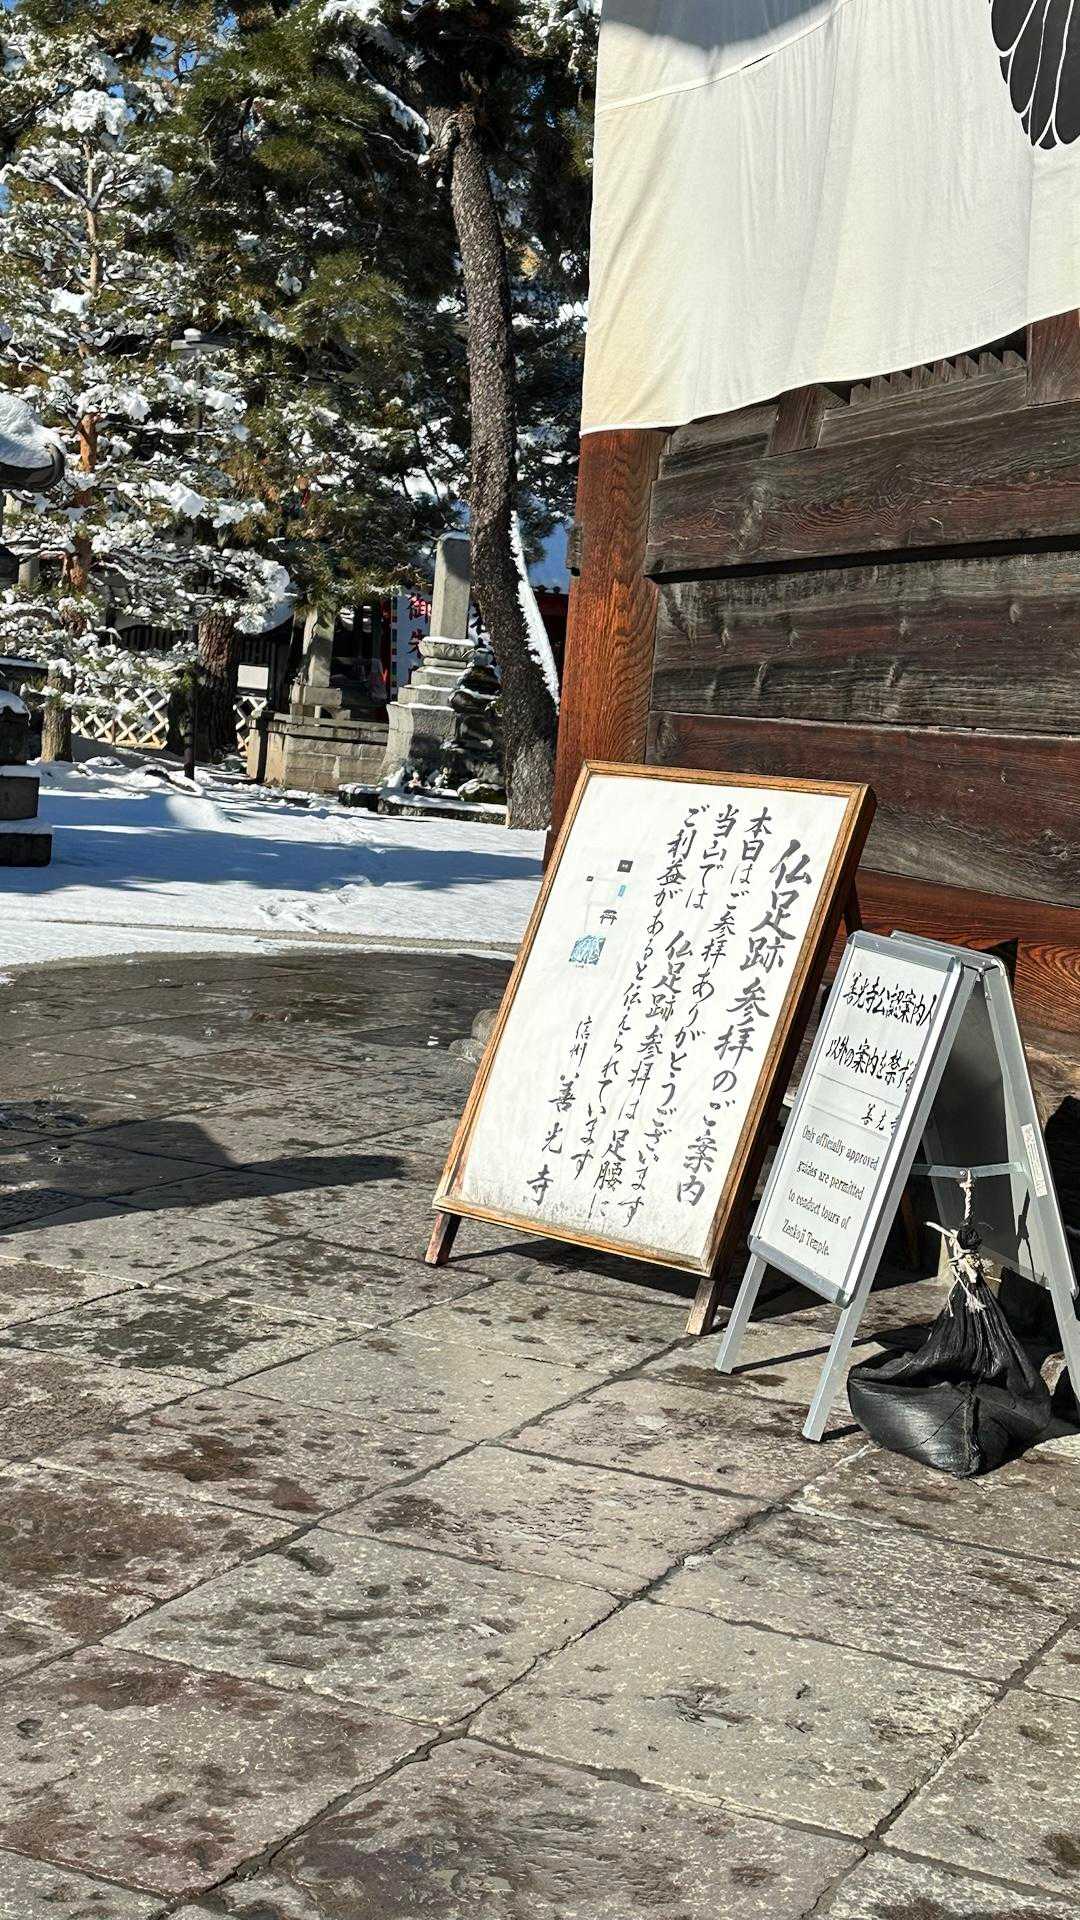 仏足跡参拝のご案内
本日はご参拝ありがとうございます
当山では 仏足跡参拝は足腰に
ご利益があると伝えられています
信州 善光寺
善光寺公認案内人
以外の案内を禁ず
善光寺
Only officially approved
guides are permitted
to conduct tours of
Zenkoji Temple.
御朱